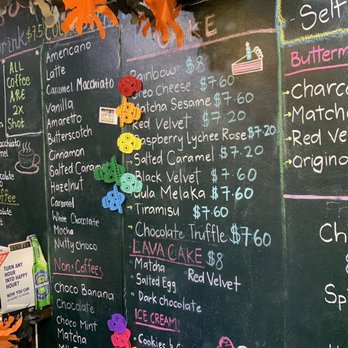 Drink $7.5
ALL
Coffee
ARE
2X
SHOT
Americano
Latte
Caramel Macchiato
Vanilla
Amaretto
Butterscotch
Cinnamon
Salted Caramel
Hazelnut
Caramel
White Chocolate
Mocha
Nutty Choco
Non-Coffees
Choco Banana
Chocolate
Choco Mint
Matcha
TURN ANY
HOUR
INTO HAPPY
HOUR!
CAKE
Rainbow $8
Oreo Cheese $7.60
Matcha Sesame $7.60
Red Velvet $7.20
Raspberry Lychee Rose $7.20
Salted Caramel $7.20
Black Velvet $7.60
Gula Melaka $7.60
Tiramisu $7.60
Chocolate Truffle $7.60
LAVA CAKE $8
Matcha Red Velvet
Salted Egg
Dark chocolate
ICE CREAM
Cookies &
Self
Butterm
Charco
Matcha
Red Ve
Origina
Ch
Sp